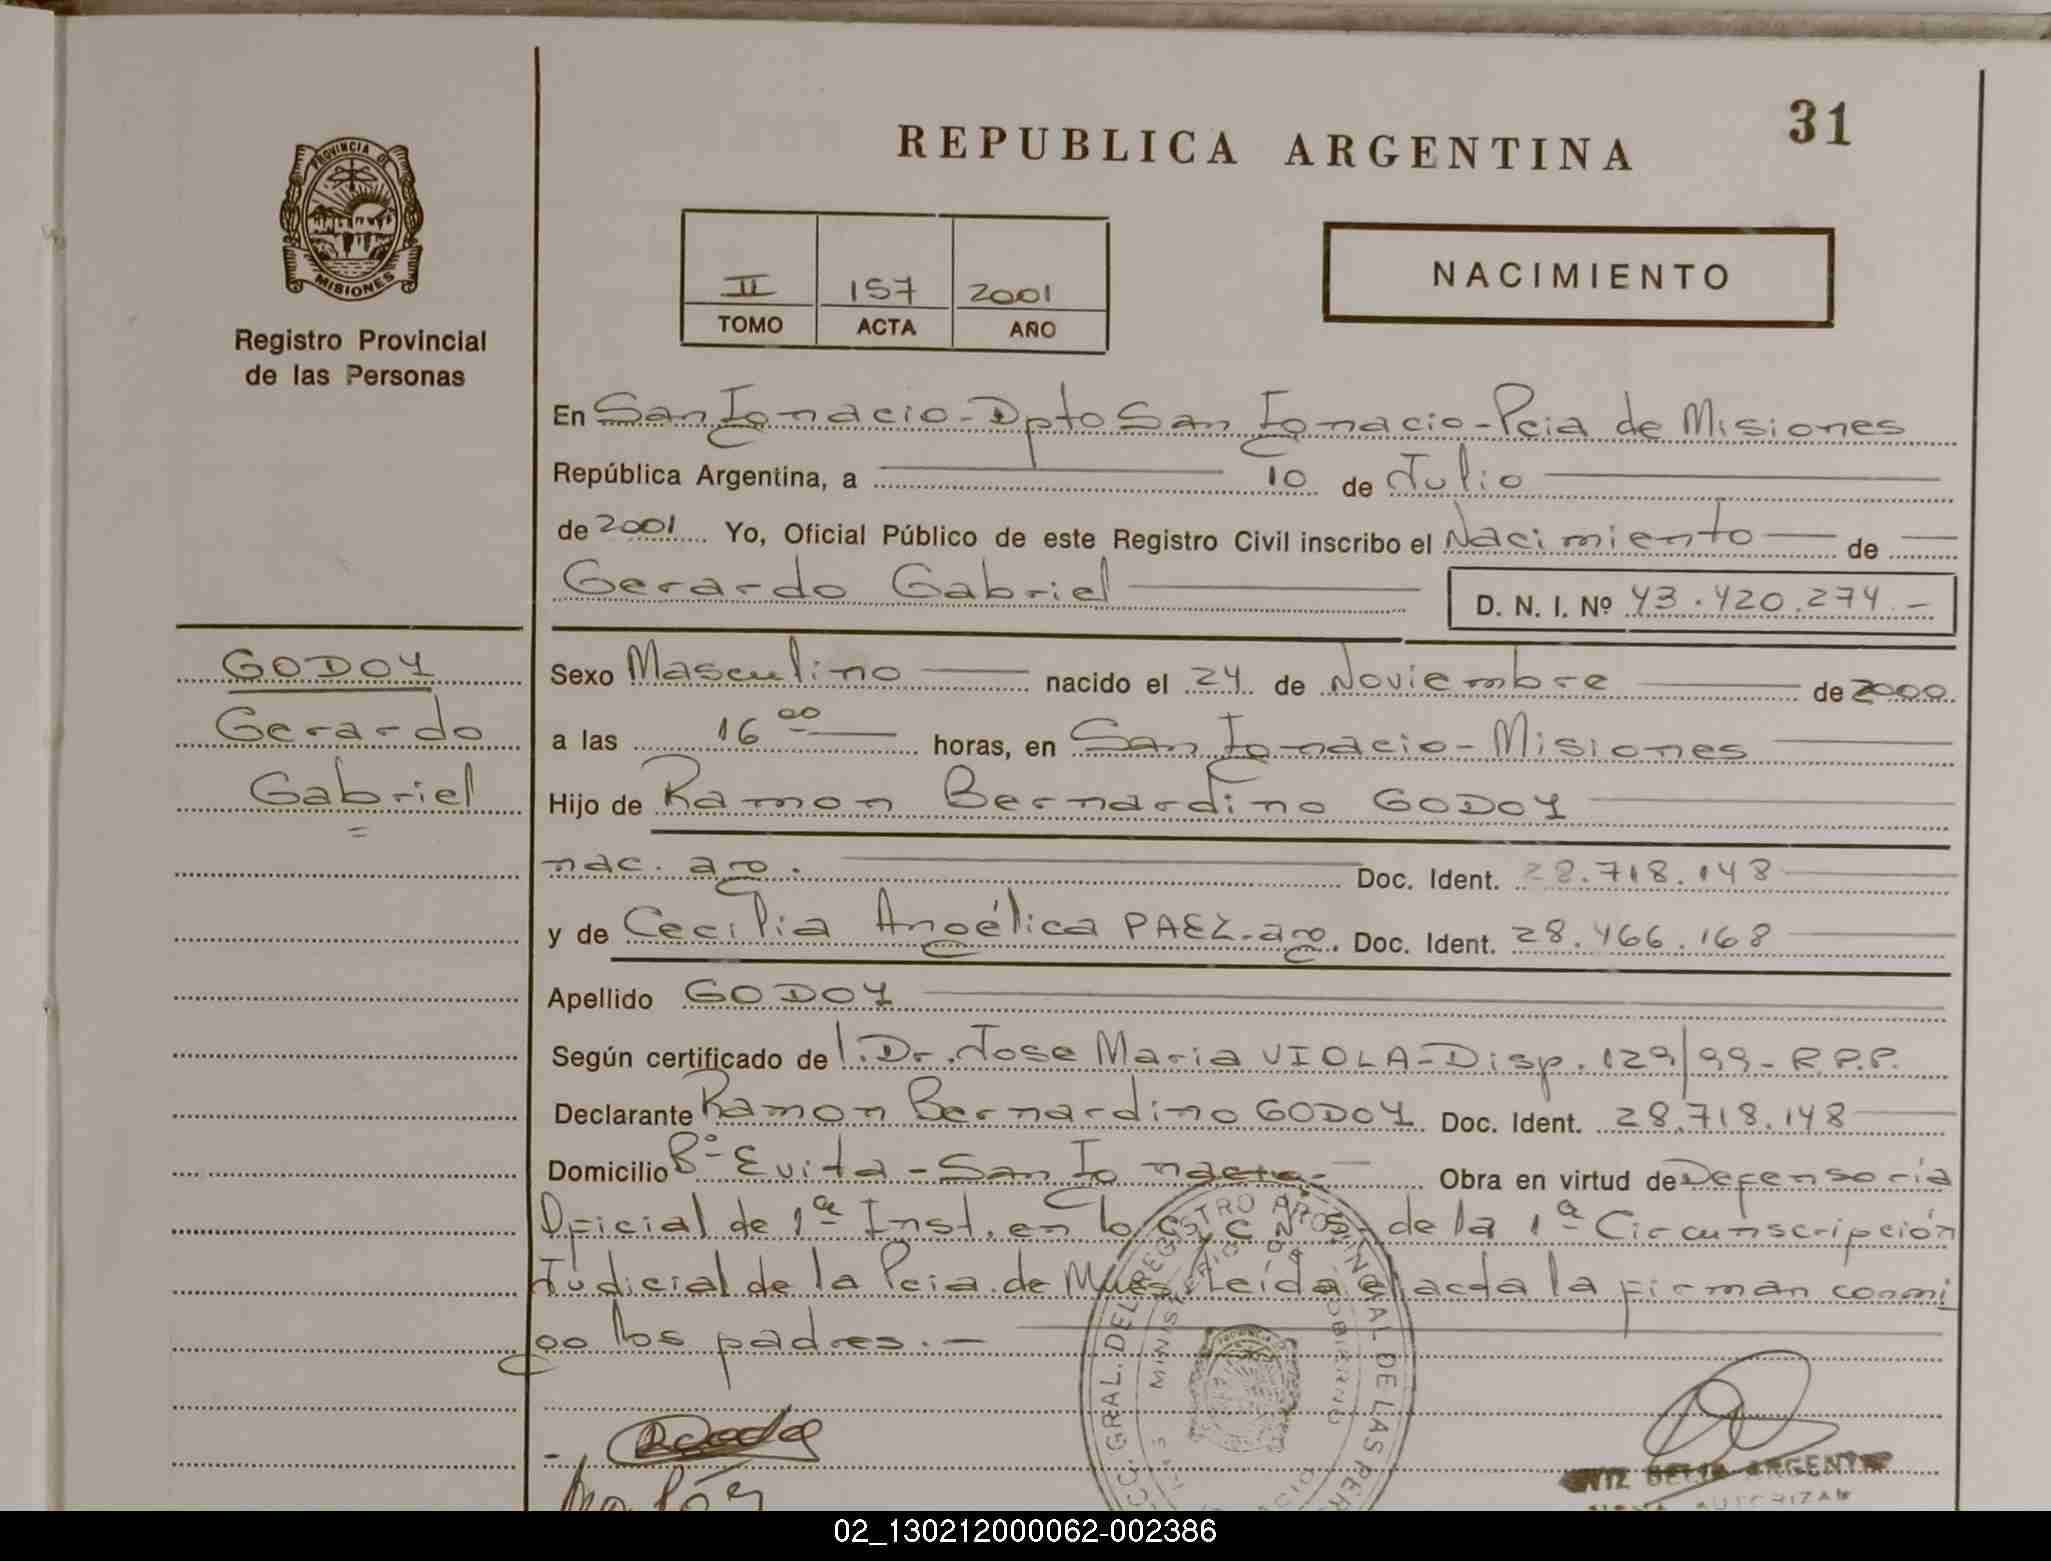 31
REPUBLICA ARGENTINA
PROVINCIA DE
MISIONES
Registro Provincial
de las Personas
II 157 2001
TOMO ACTA AÑO
NACIMIENTO
En San Ignacio - Dpto San Ignacio - Pcia de Misiones
República Argentina, a 10 de Julio
de 2001 Yo, Oficial Público de este Registro Civil inscribo el Nacimiento de
Gerardo Gabriel D. N. I. Nº 43.420.274.-
GODOY
Gerardo
Gabriel
Sexo Masculino nacido el 24 de Noviembre de 2000
a las 16 00 horas, en San Ignacio - Misiones
Hijo de Ramon Bernardino GODOY
nac. arg. Doc. Ident. 28.718.148
y de Cecilia Angélica PAEZ - arg. Doc. Ident. 28.466.168
Apellido GODOY
Según certificado de l. Dr. Jose Maria VIOLA - Disp. 129/99 - R.P.P.
Declarante Ramon Bernardino GODOY Doc. Ident. 28.718.148
Domicilio Bº Evita - San Ignacio - Obra en virtud de Defensoría
Oficial de 1ª Inst. en lo C. C. de la 1ª Circunscripción
Judicial de la Pcia. de Mnes. Leída el acta la firman conmi
go los padres.-
GRAL. DEL REGISTRO PROVINCIAL DE LAS PER
MINISTERIO DE GOBIERNO
ARGENT
AUTORIZA
02_130212000062-002386